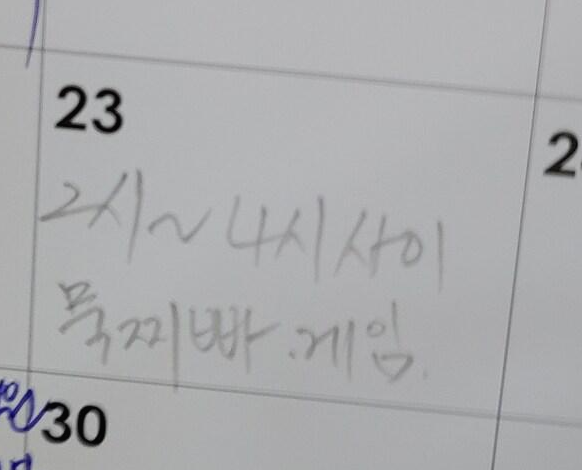 23
2시~4시 사이
묵찌빠.게임.
30